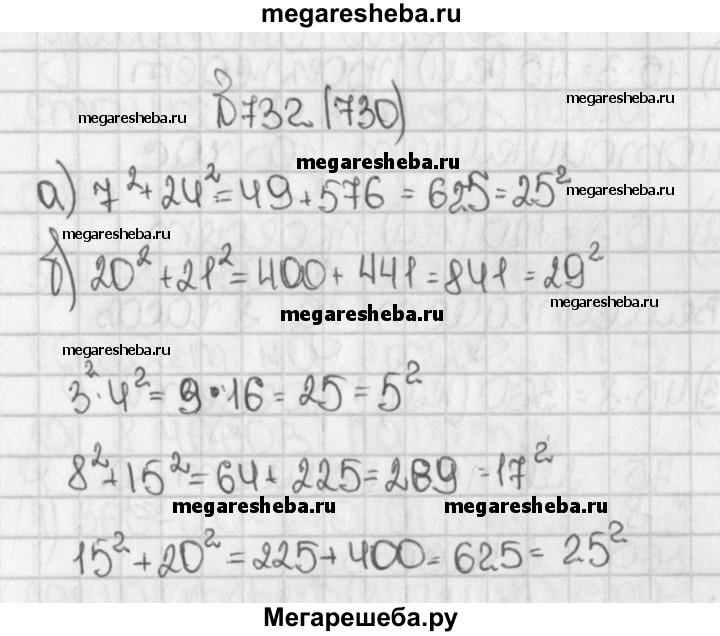 megaresheba.ru
№732 (730)
megaresheba.ru
megaresheba.ru
megaresheba.ru
а) 7² + 24² = 49 + 576 = 625 = 25²
megaresheba.ru
megaresheba.ru
б) 20² + 21² = 400 + 441 = 841 = 29²
megaresheba.ru
megaresheba.ru
megaresheba.ru
3² · 4² = 9 · 16 = 25 = 5²
8² + 15² = 64 + 225 = 289 = 17²
megaresheba.ru
megaresheba.ru
15² + 20² = 225 + 400 = 625 = 25²
Мегарешеба.ру